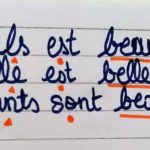 ls est beau
lle est belle
ants sont bea